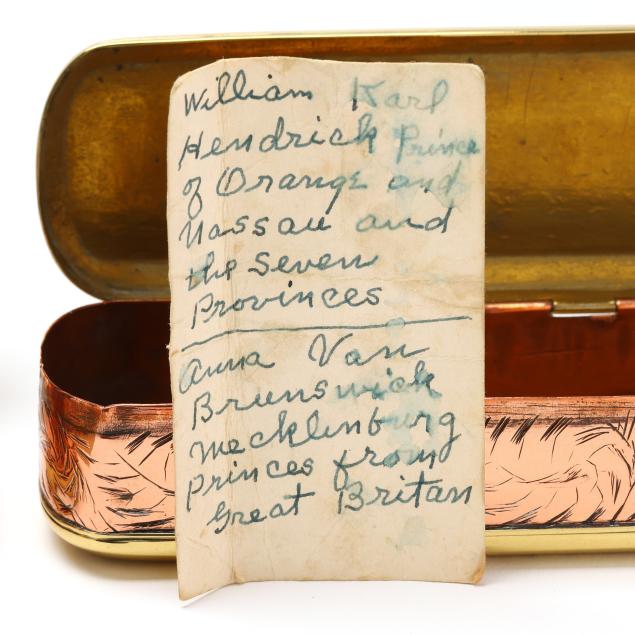 William Karl
Hendrick Prince
of Orange and
Nassau and
the Seven
Provinces
Anna Van
Brunswick
Mecklinburg
Princes from
Great Britan